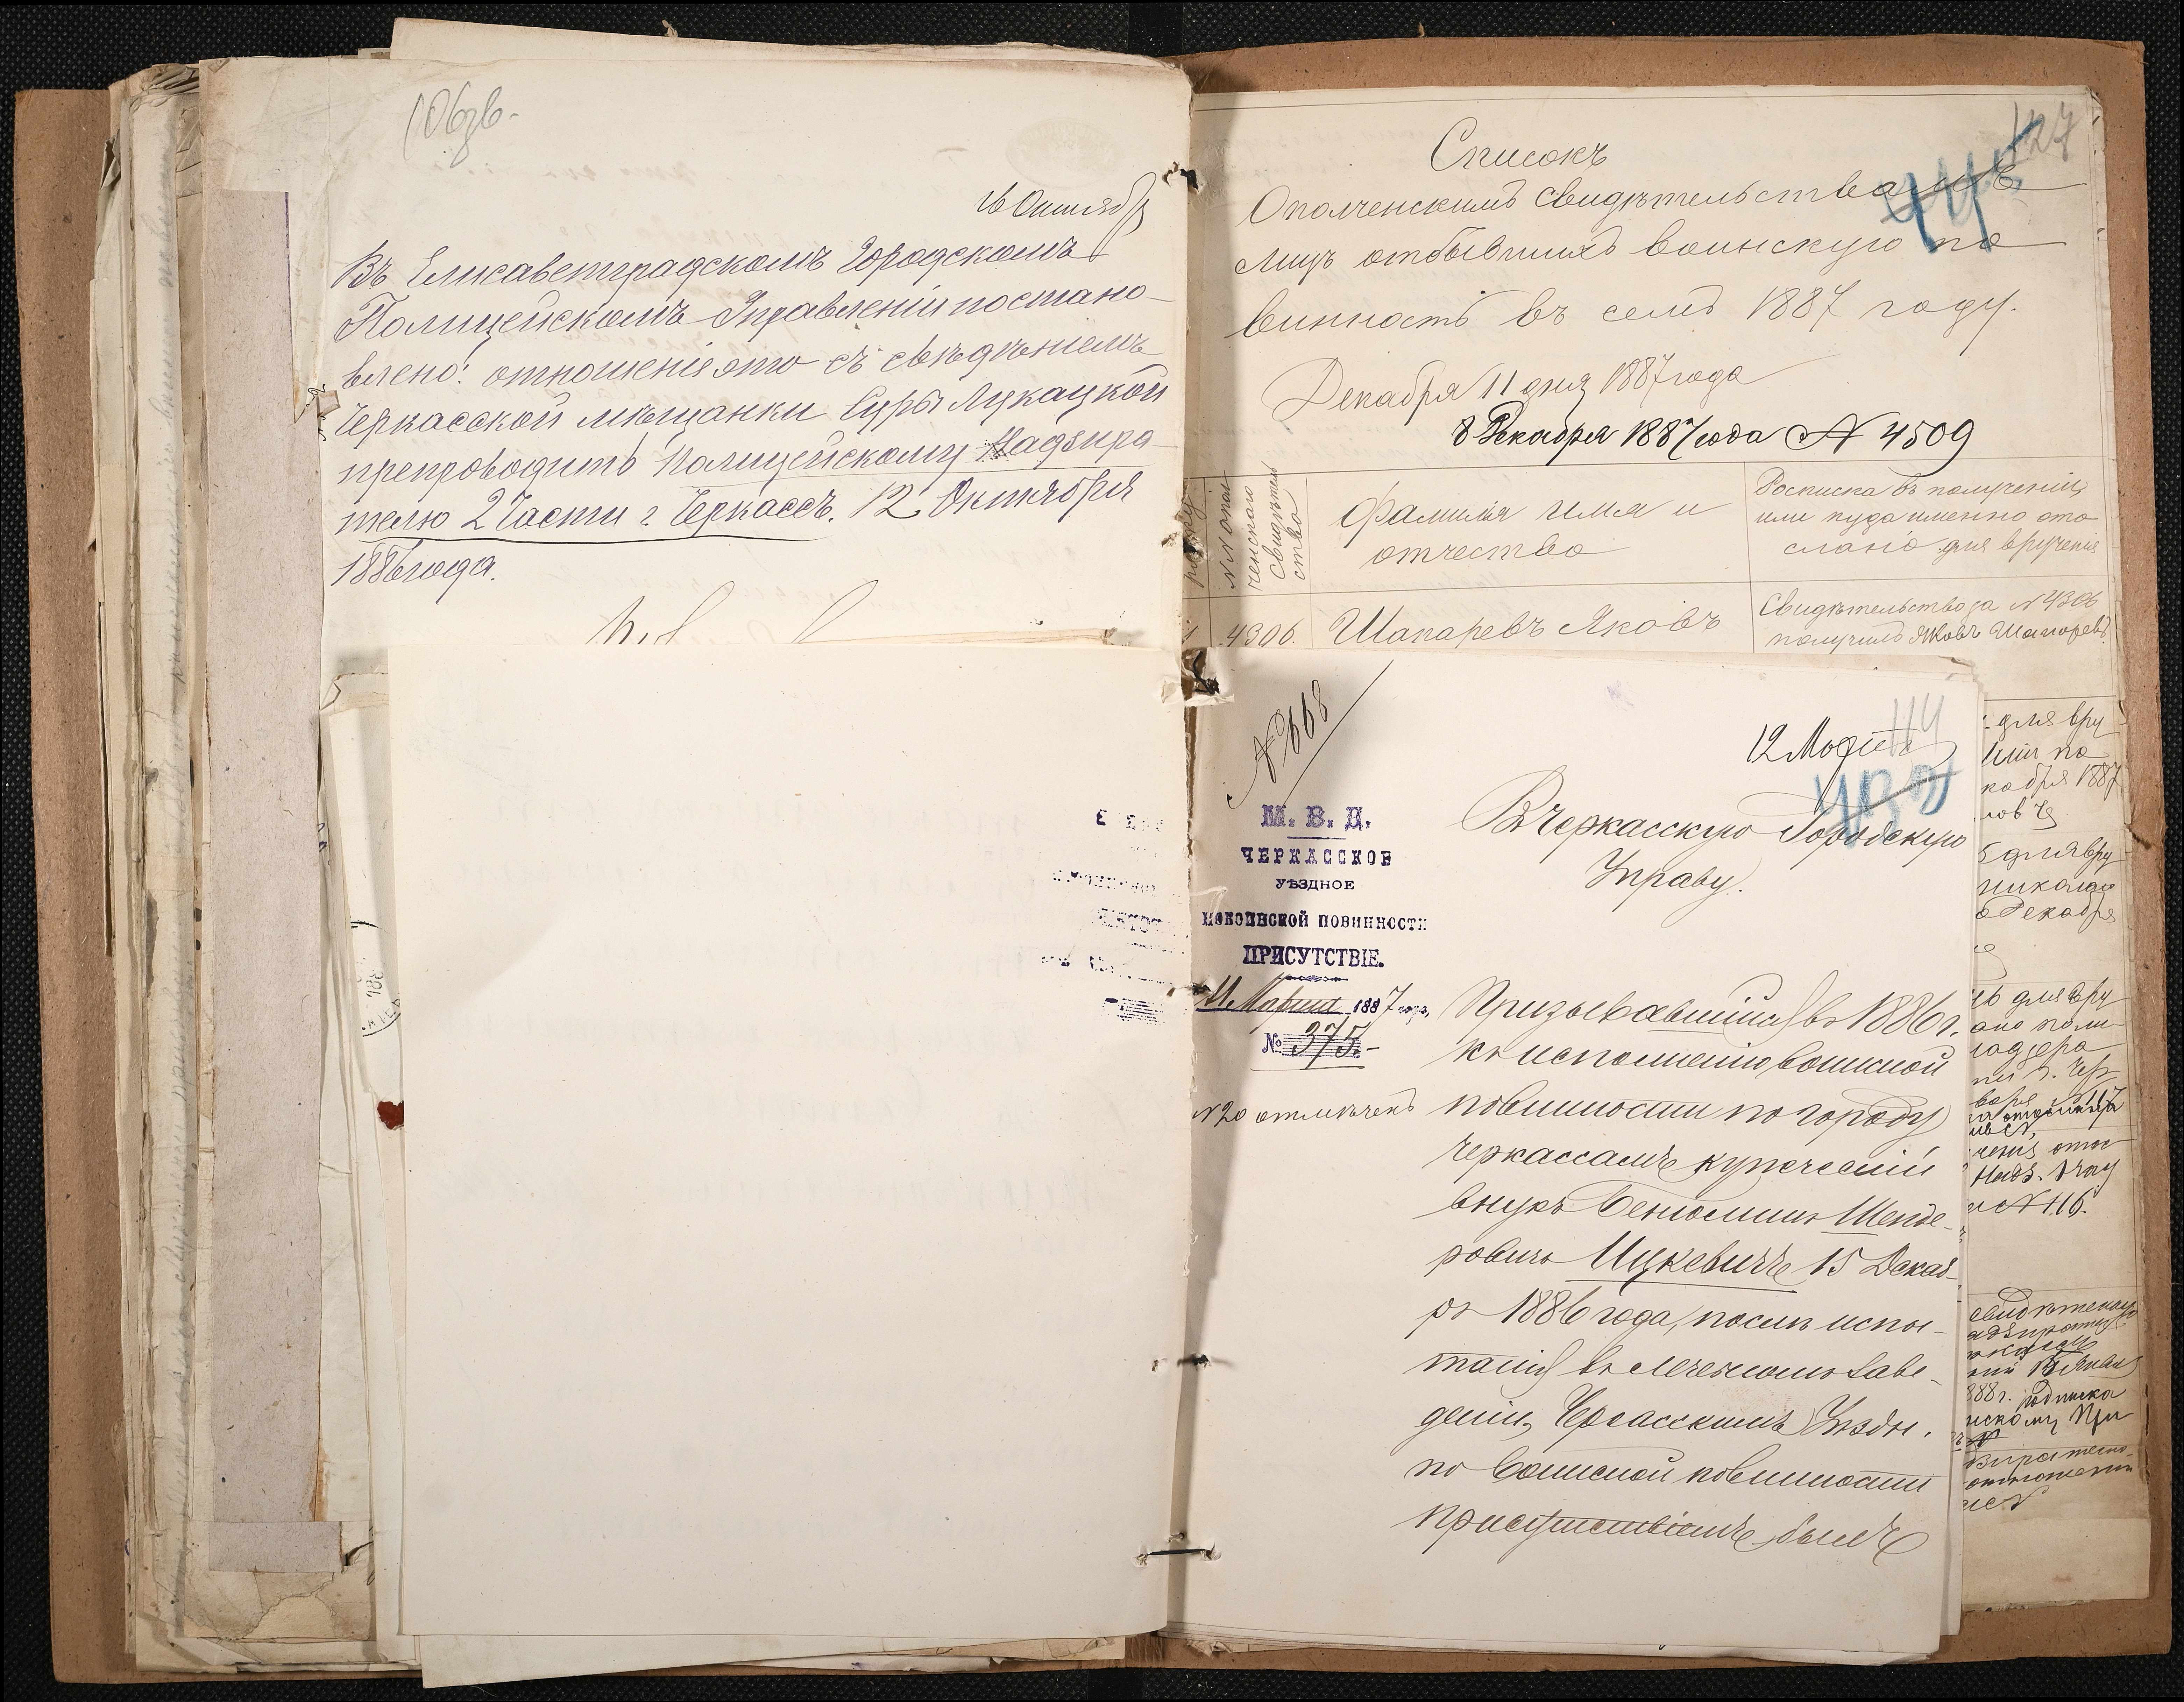 16 Октября
Въ Елисаветградскомъ Городскомъ
Полицейскомъ Управленіи постано-
влено: отношеніе это съ свѣдѣніемъ
Черкасской мѣщанки Суры Лукацкой
препроводить Полицейскому Надзира-
телю 2 Части г. Черкассъ. 12 Октября
1886 года.
127
Списокъ
44
Ополченскимъ свидѣтельствамъ
лицъ отбывшихъ воинскую по-
винность въ семъ 1887 году.
Декабря 11 дня 1887 года
8 Декабря 1887 года № 4509
№№ опол
ченскаго
Свидѣтель
ства
Фамилія имя и
отчество
Росписка въ полученіи,
или куда именно ото
слано для врученія
1
4306.
Шапаревъ Яковъ
Свидѣтельство за № 4306
получилъ Яковъ Шапоревъ.
№ 668
114
12 Марта
Въ Черкасскую Городскую
Управу.
М. В. Д.
ЧЕРКАССКОЕ
УѢЗДНОЕ
ПО ВОИНСКОЙ ПОВИННОСТИ
ПРИСУТСТВІЕ.
11 Марта 1887 года,
№ 375.-
№ 20 отмѣченъ
Призывавшійся въ 1886 г.
къ исполненію воинской
повинности по городу
Черкассамъ купеческій
внукъ Беніоминъ Шенде-
ровичъ Ицкевичъ 15 Декаб-
ря 1886 года, послѣ испы-
танія въ лечебномъ заве-
деніи, Черкасскимъ Уѣздн.
по воинской повинности
присутствіемъ былъ
для вру
кабря 1887
для вру
Декабря
для вру
Надз. 1 чау
№ 116.
888 г. подписка